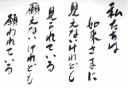 私たちは
如来さまに
見えないけれども
見られている
願えないけれども
願われている